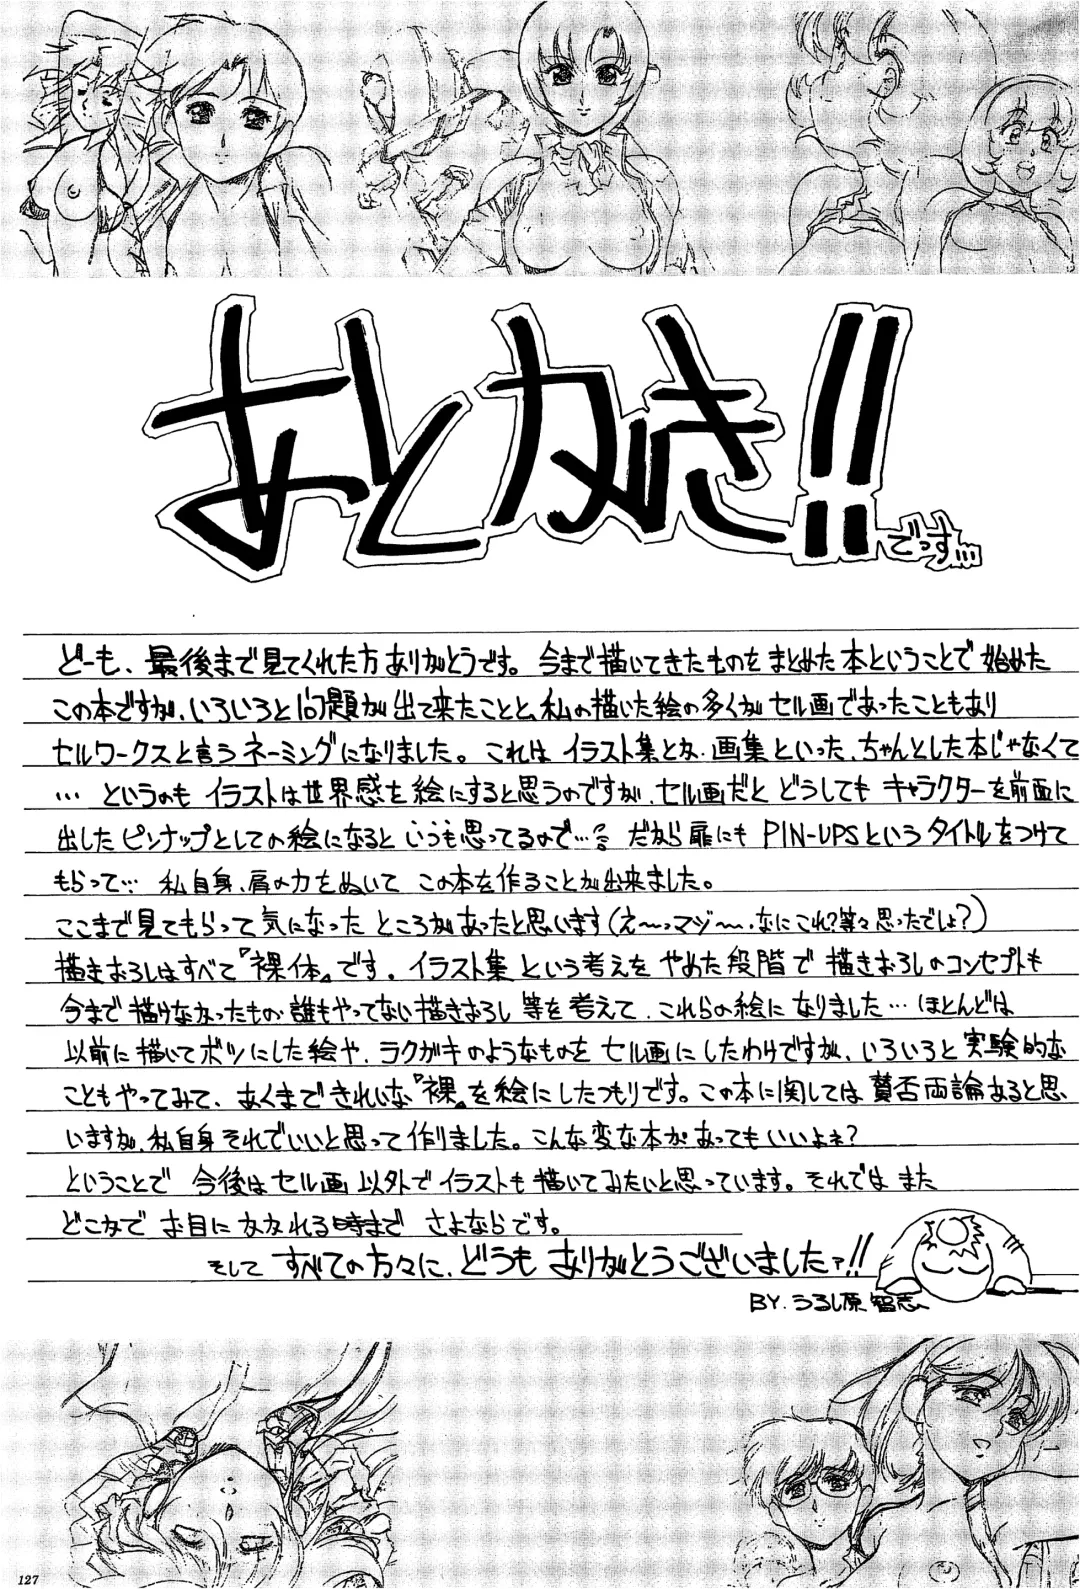 あとがき!!
でっす…
どーも、最後まで見てくれた方ありがとうです。今まで描いてきたものをまとめた本ということで始めた
この本ですが、いろいろと問題が出て来たことと、私の描いた絵の多くがセル画であったこともあり
セルワークスと言うネーミングになりました。これはイラスト集とか・画集といった、ちゃんとした本じゃなくて
… というのもイラストは世界感を絵にすると思うのですが、セル画だとどうしてもキャラクターを前面に
出したピンナップとしての絵になるといつも思ってるので…。だから扉にもPIN-UPSというタイトルをつけて
もらって… 私自身、肩の力をぬいてこの本を作ることが出来ました。
ここまで見てもらって気になったところがあったと思います(え〜っマジ〜、なにこれ?等々思ったでしょ?)
描きおろしはすべて『裸体』です。イラスト集という考えをやめた段階で描きおろしのコンセプトも
今まで描けなかったもの・誰もやってない描きおろし等を考えて、これらの絵になりました…ほとんどは
以前に描いてボツにした絵や、ラクガキのようなものをセル画にしたわけですが、いろいろと実験的な
こともやってみて、あくまできれいな『裸』を絵にしたつもりです。この本に関しては賛否両論あると思
いますが、私自身それでいいと思って作りました。こんな変な本があってもいいよね?
ということで 今後はセル画以外でイラストも描いてみたいと思っています。それではまた
どこかでお目にかかれる時までさよならです。
そしてすべての方々に、どうもありがとうございましたァ!!
BY. うるし原 智志
127